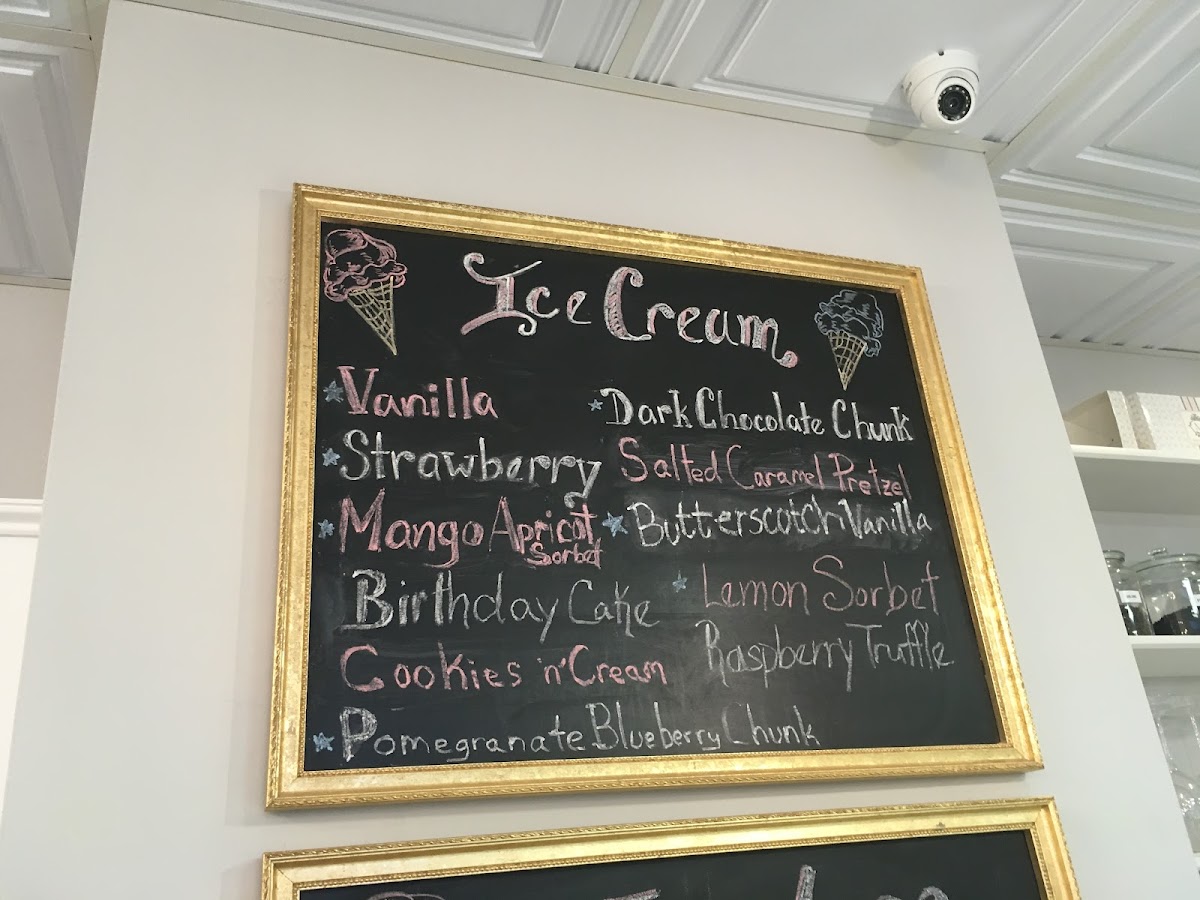 Ice Cream
Vanilla
Strawberry
Mango Apricot
Sorbet
Birthday Cake
Cookies 'n' Cream
Pomegranate Blueberry Chunk
Dark Chocolate Chunk
Salted Caramel Pretzel
Butterscotch Vanilla
Lemon Sorbet
Raspberry Truffle